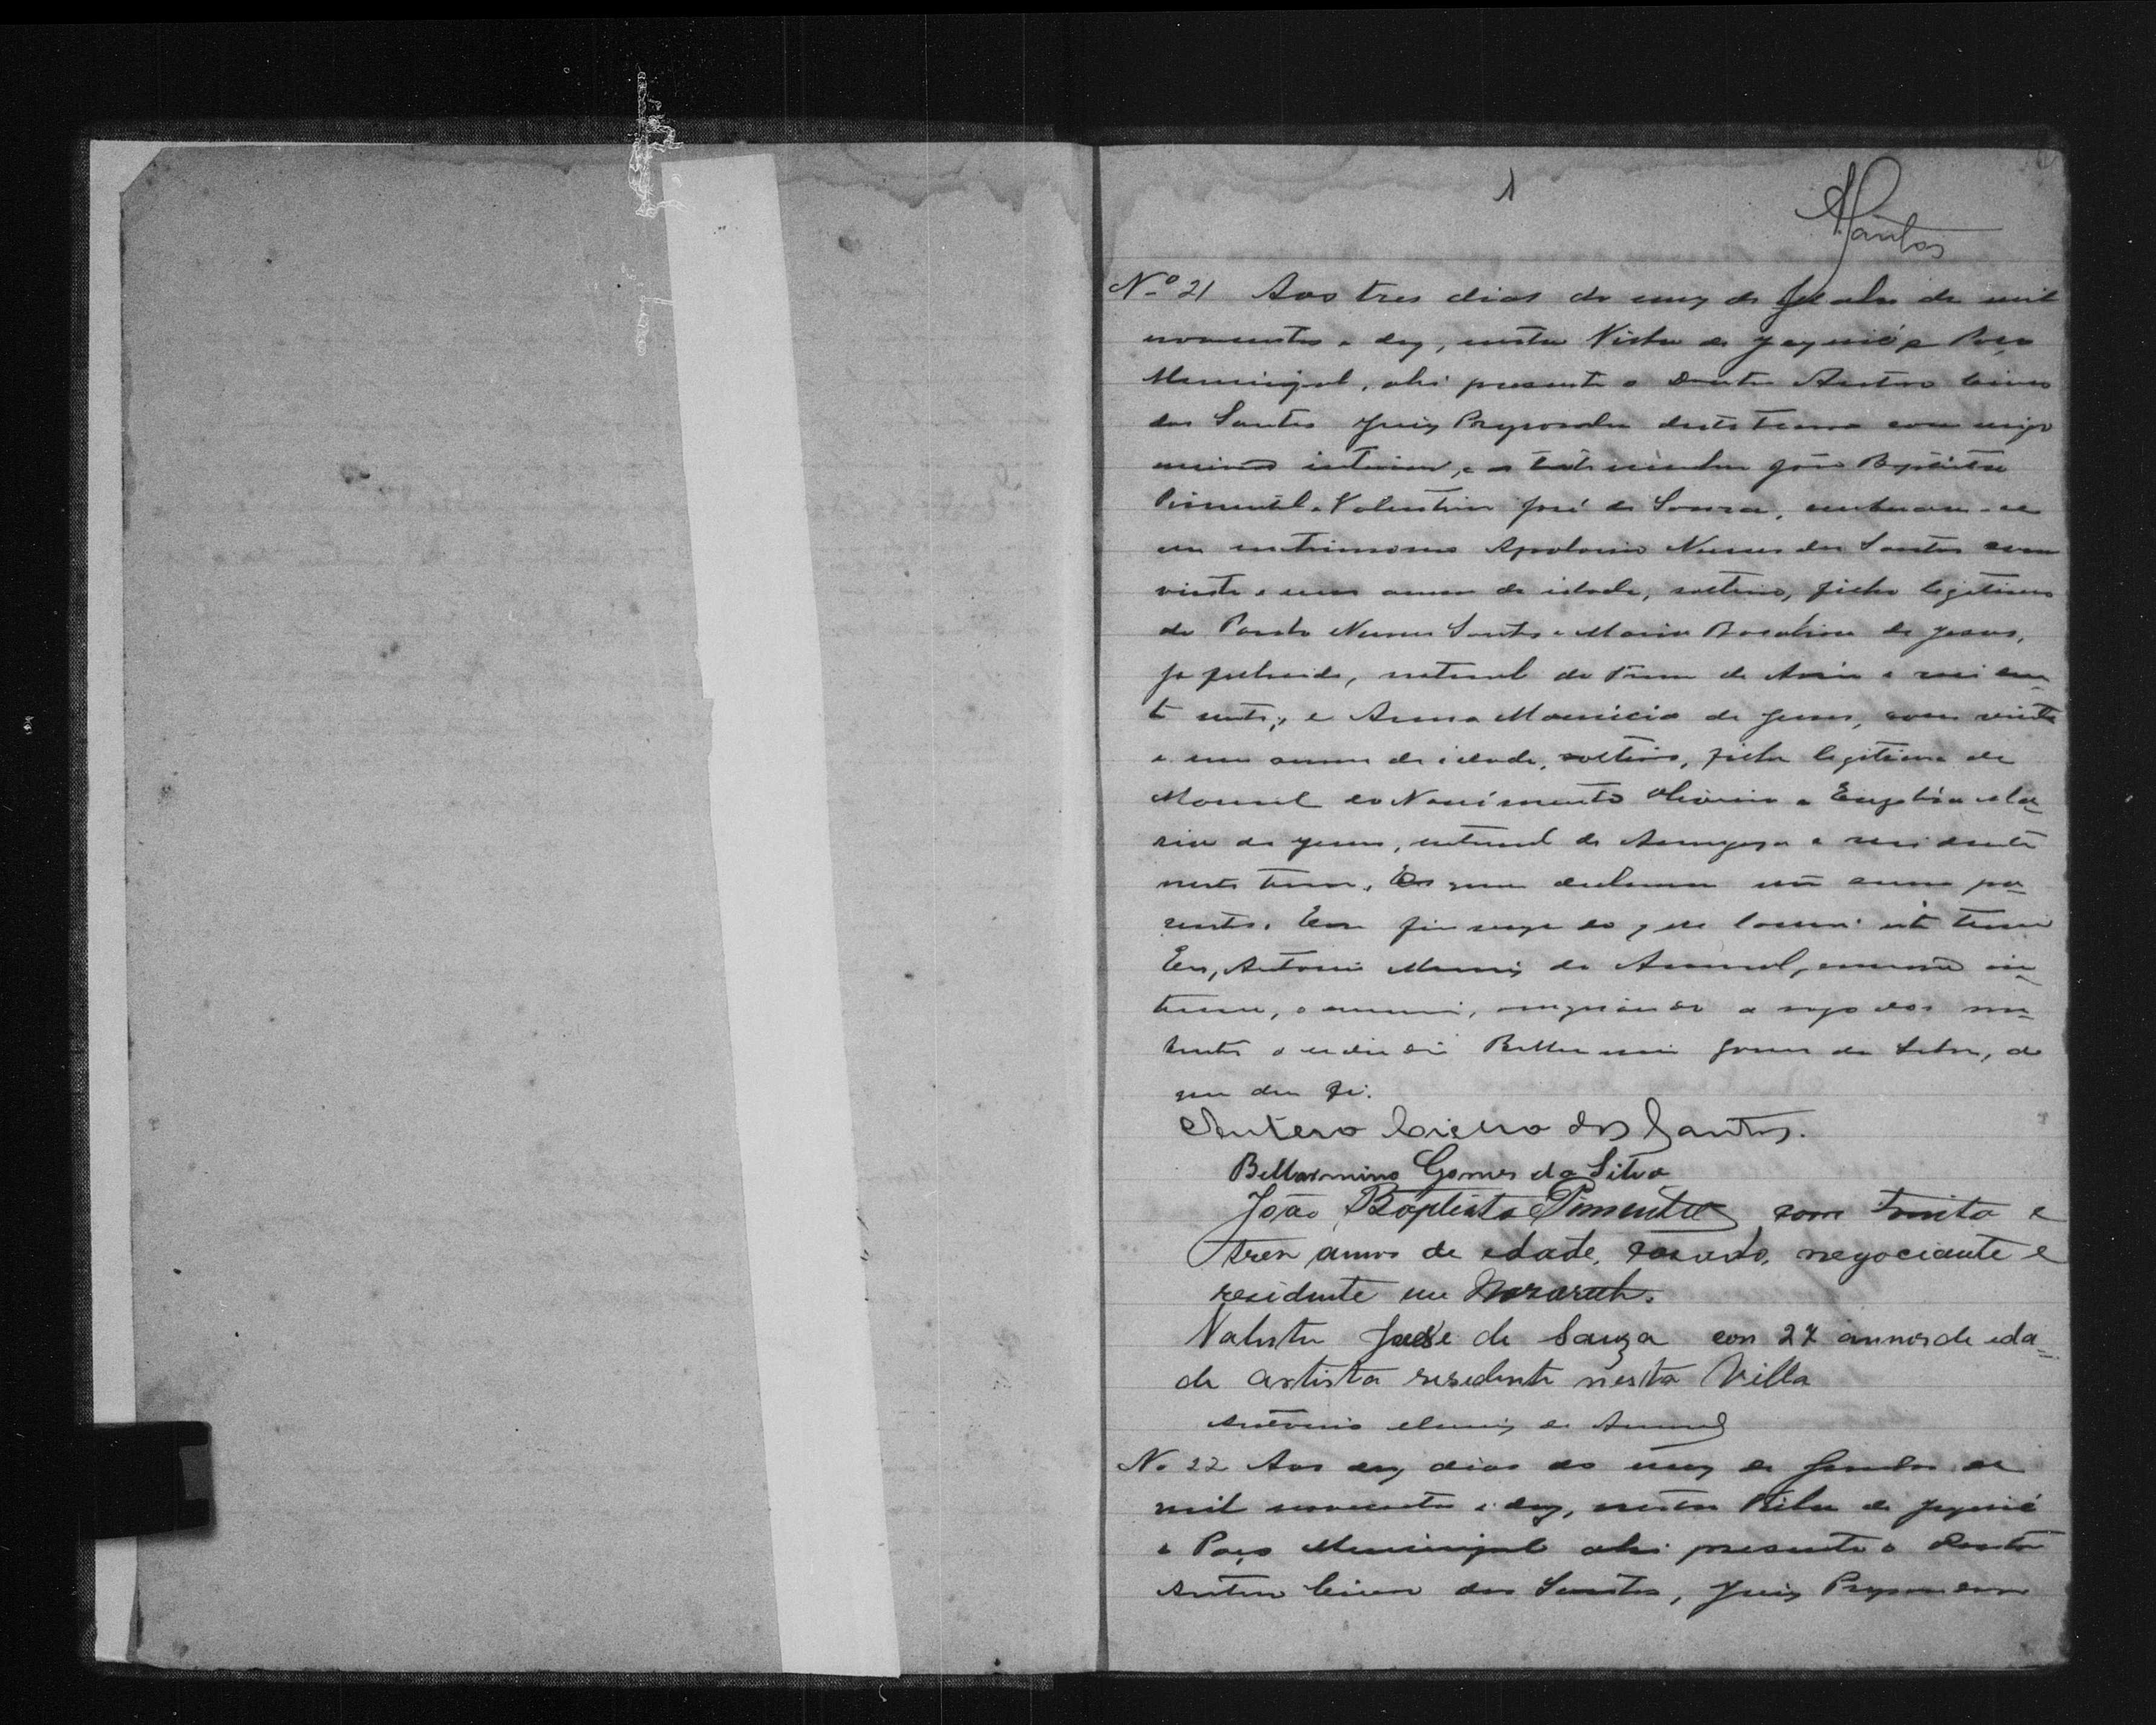 1
ASantos
Nº 21 Aos tres dias do mez de de mil
novecentos e dez, nesta Villa de Jequié e Paço
Municipal, ahi presente o Doutor Antero Cicero
dos Santos Juiz Preparador deste Termo commigo
escrivão interino, e as testemunhas João Baptista
Pimentel e Valentim José de Souza, receberam-se
em matrimonio Apolonio Nunes dos Santos com
vinte e um annos de idade, solteiro, filho legitimo
de Nunes Santos e Maria Rosalina de Jesus,
ja fallecida, natural do Termo de Areia e residen-
te neste, e Anna Mauricia de Jesus, com vinte
e um annos de idade, solteira, filha legitima de
Manuel do Nascimento Oliveira e Ma-
ria de Jesus, natural de Amargosa e residente
neste termo, Os quaes declaram não serem pa-
rentes. Em firmeza do que lavrei este termo
Eu, Antonio Muniz do Amaral, escrivão in-
terino, o escrevi, assignando a rogo dos nu-
bentes o cidadão Bellarmino Gomes da Silva, do
que dou fé.
Antero Cicero dos Santos.
Bellarmino Gomes da Silva
João Baptista Pimentel com trinta e
tres annos de edade, casado, negociante e
residente em Nazareth.
José de Sauza con 27 annos de eda=
de artista resedente nesta Villa
Antonio Muniz do Amaral
No 22 Aos dez dias do mez de de
mil novecentos e dez, nesta Villa de Jequié
e Paço Municipal ahi presente o Doutor
Antero Cicero dos Santos, Juiz Preparador